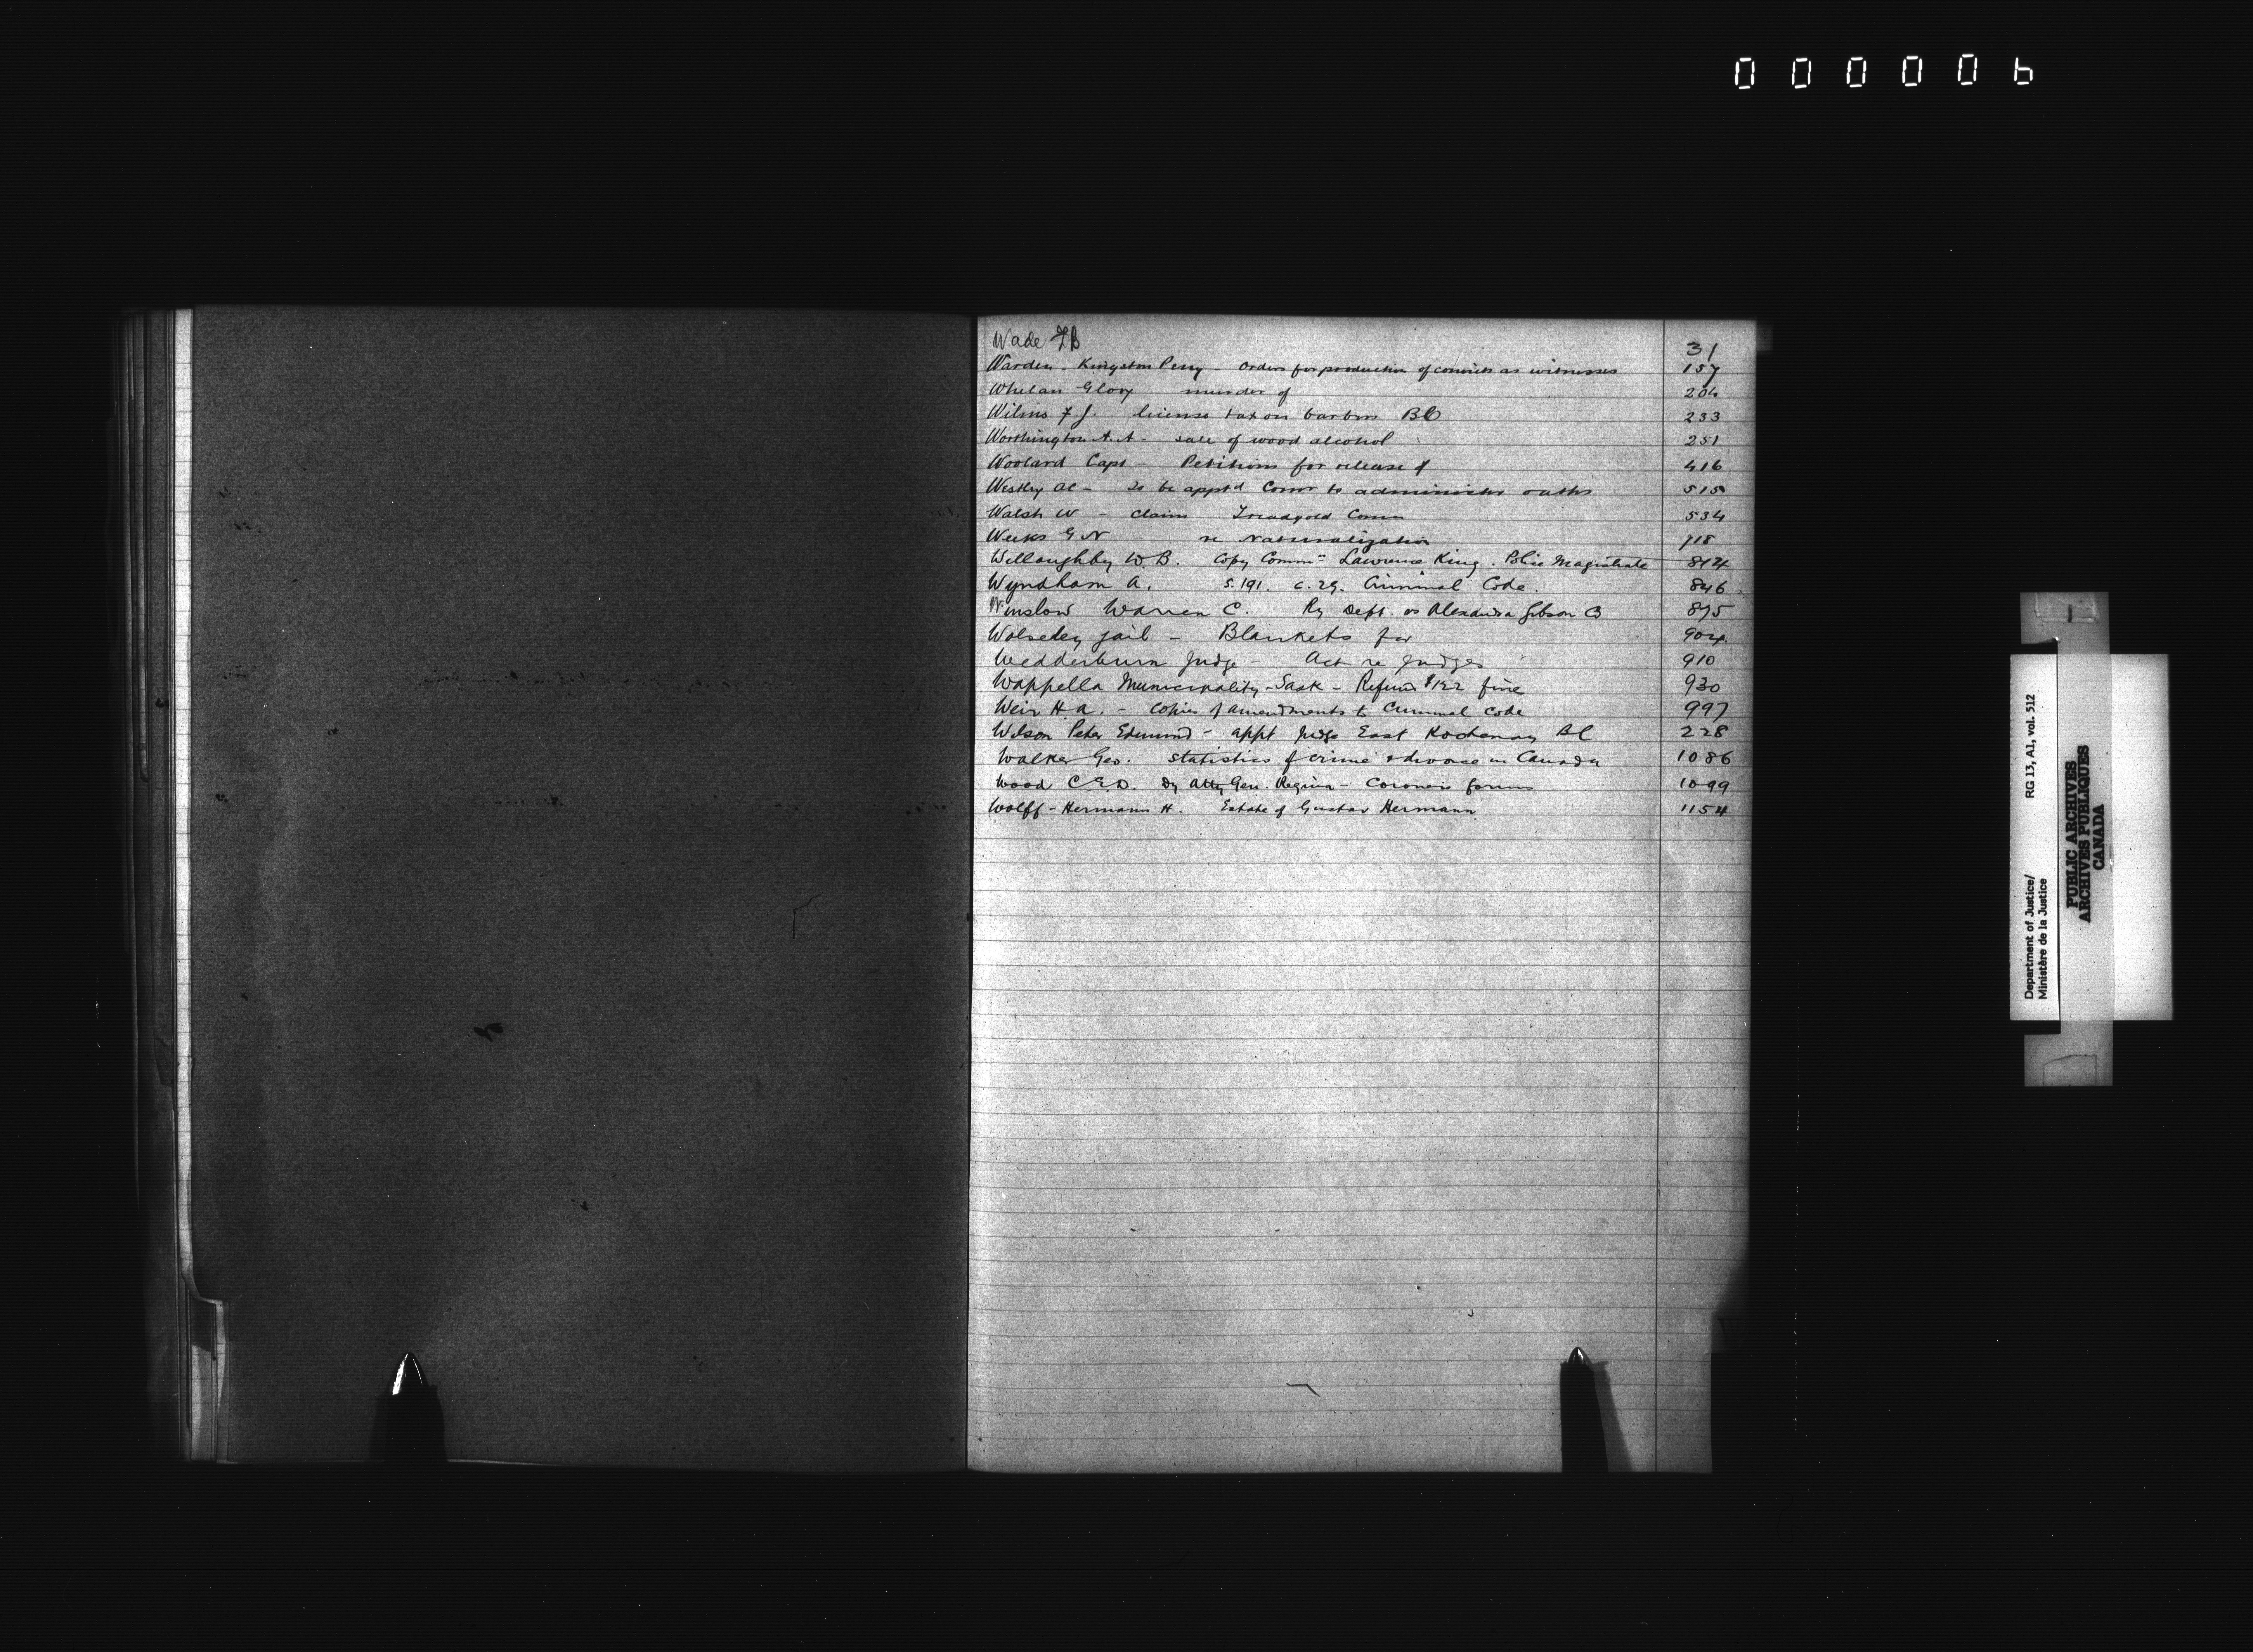 000006
Wade FB 31
Warden - Kingston Peny - Orders for production of convicts as witnesses 157
Whelan Glory murder of 204
Wilms F.J. license tax on barbers BC 233
Worthington A.A - sale of wood alcohol 251
Woolard Capt - Petitions for release of 416
Westley AC - To be appt'd Comr to administer oaths 515
Walsh W - Claim Treadgold Comn 534
Weeks G N re Naturalization 718
Willoughby W.B. Copy Commn Lawrence King. Police Magistrate 814
Wyndham A. S. 191. c. 29. Criminal Code. 846
Winslow Warren C. Ry Dept. vs Alexander Gibson Co 875
Wolseley jail - Blankets for 904
Wedderburn Judge - Act re Judges 910
Wappella Municipality - Sask - Refund $122 fine 930
Weir H.A. - Copies of amendments to Criminal Code 997
Wilson Peter Edmund - appt Judge East Kootenay BC 228
Walker Geo. Statistics of crime & divorce in Canada 1086
Wood C.E.D. Dy Atty Gen. Regina - Coroners forms 1099
Wolff - Hermann H. Estate of Gustav Hermann 1154
Department of Justice/
Ministère de la Justice
RG 13, A1, vol. 512
PUBLIC ARCHIVES
ARCHIVES PUBLIQUES
CANADA